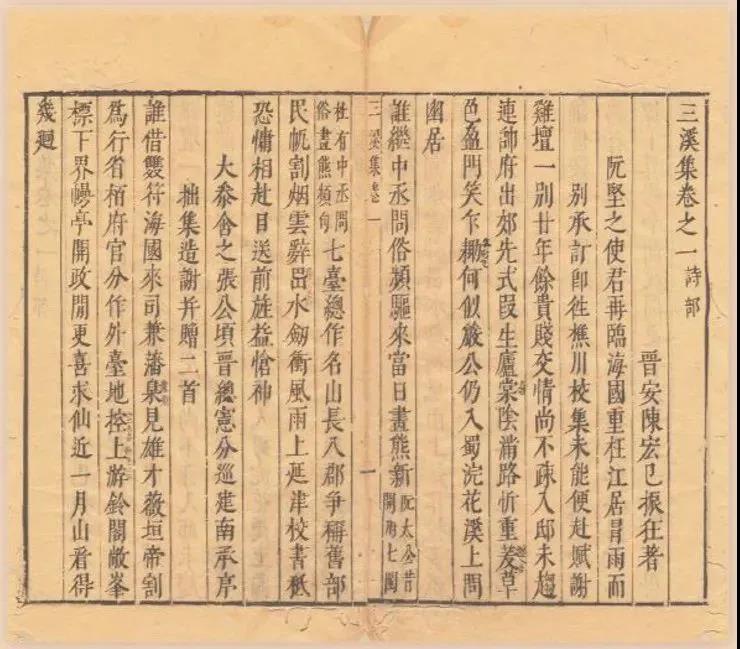 三溪集卷之一 詩部
晉安陳宏已振狂著
阮堅之使君再臨海國重枉江居冒雨而
別承訂卽徃樵川校集未能便赴賦謝
雞壇一别廿年餘貴賤交情尚不疎入邸未趨
連帥府出郊先式叚生廬棠陰滿路忻重茇草
色盈門笑乍鋤何似嚴公仍入蜀浣花溪上問
幽居
誰繼中丞問俗頻驅來當日畫熊新阮太公昔開府七閩
三溪集卷一 一
杜有中丞問俗畫熊頻句七臺總作名山長八郡爭稱舊部
民帆割烟雲辭邑水劒衝風雨上延津校書秪
恐慵相赴目送前旌益愴神
大叅會之張公頃晉總憲分巡建南承序
拙集造謝并贈二首
誰借雙符海國來司兼藩臬見雄才薇垣帝割
爲行省栢府官分作外臺地控上游鈴閣敞峯
標下界幔亭開政閒更喜求仙近一月山看得
幾廻